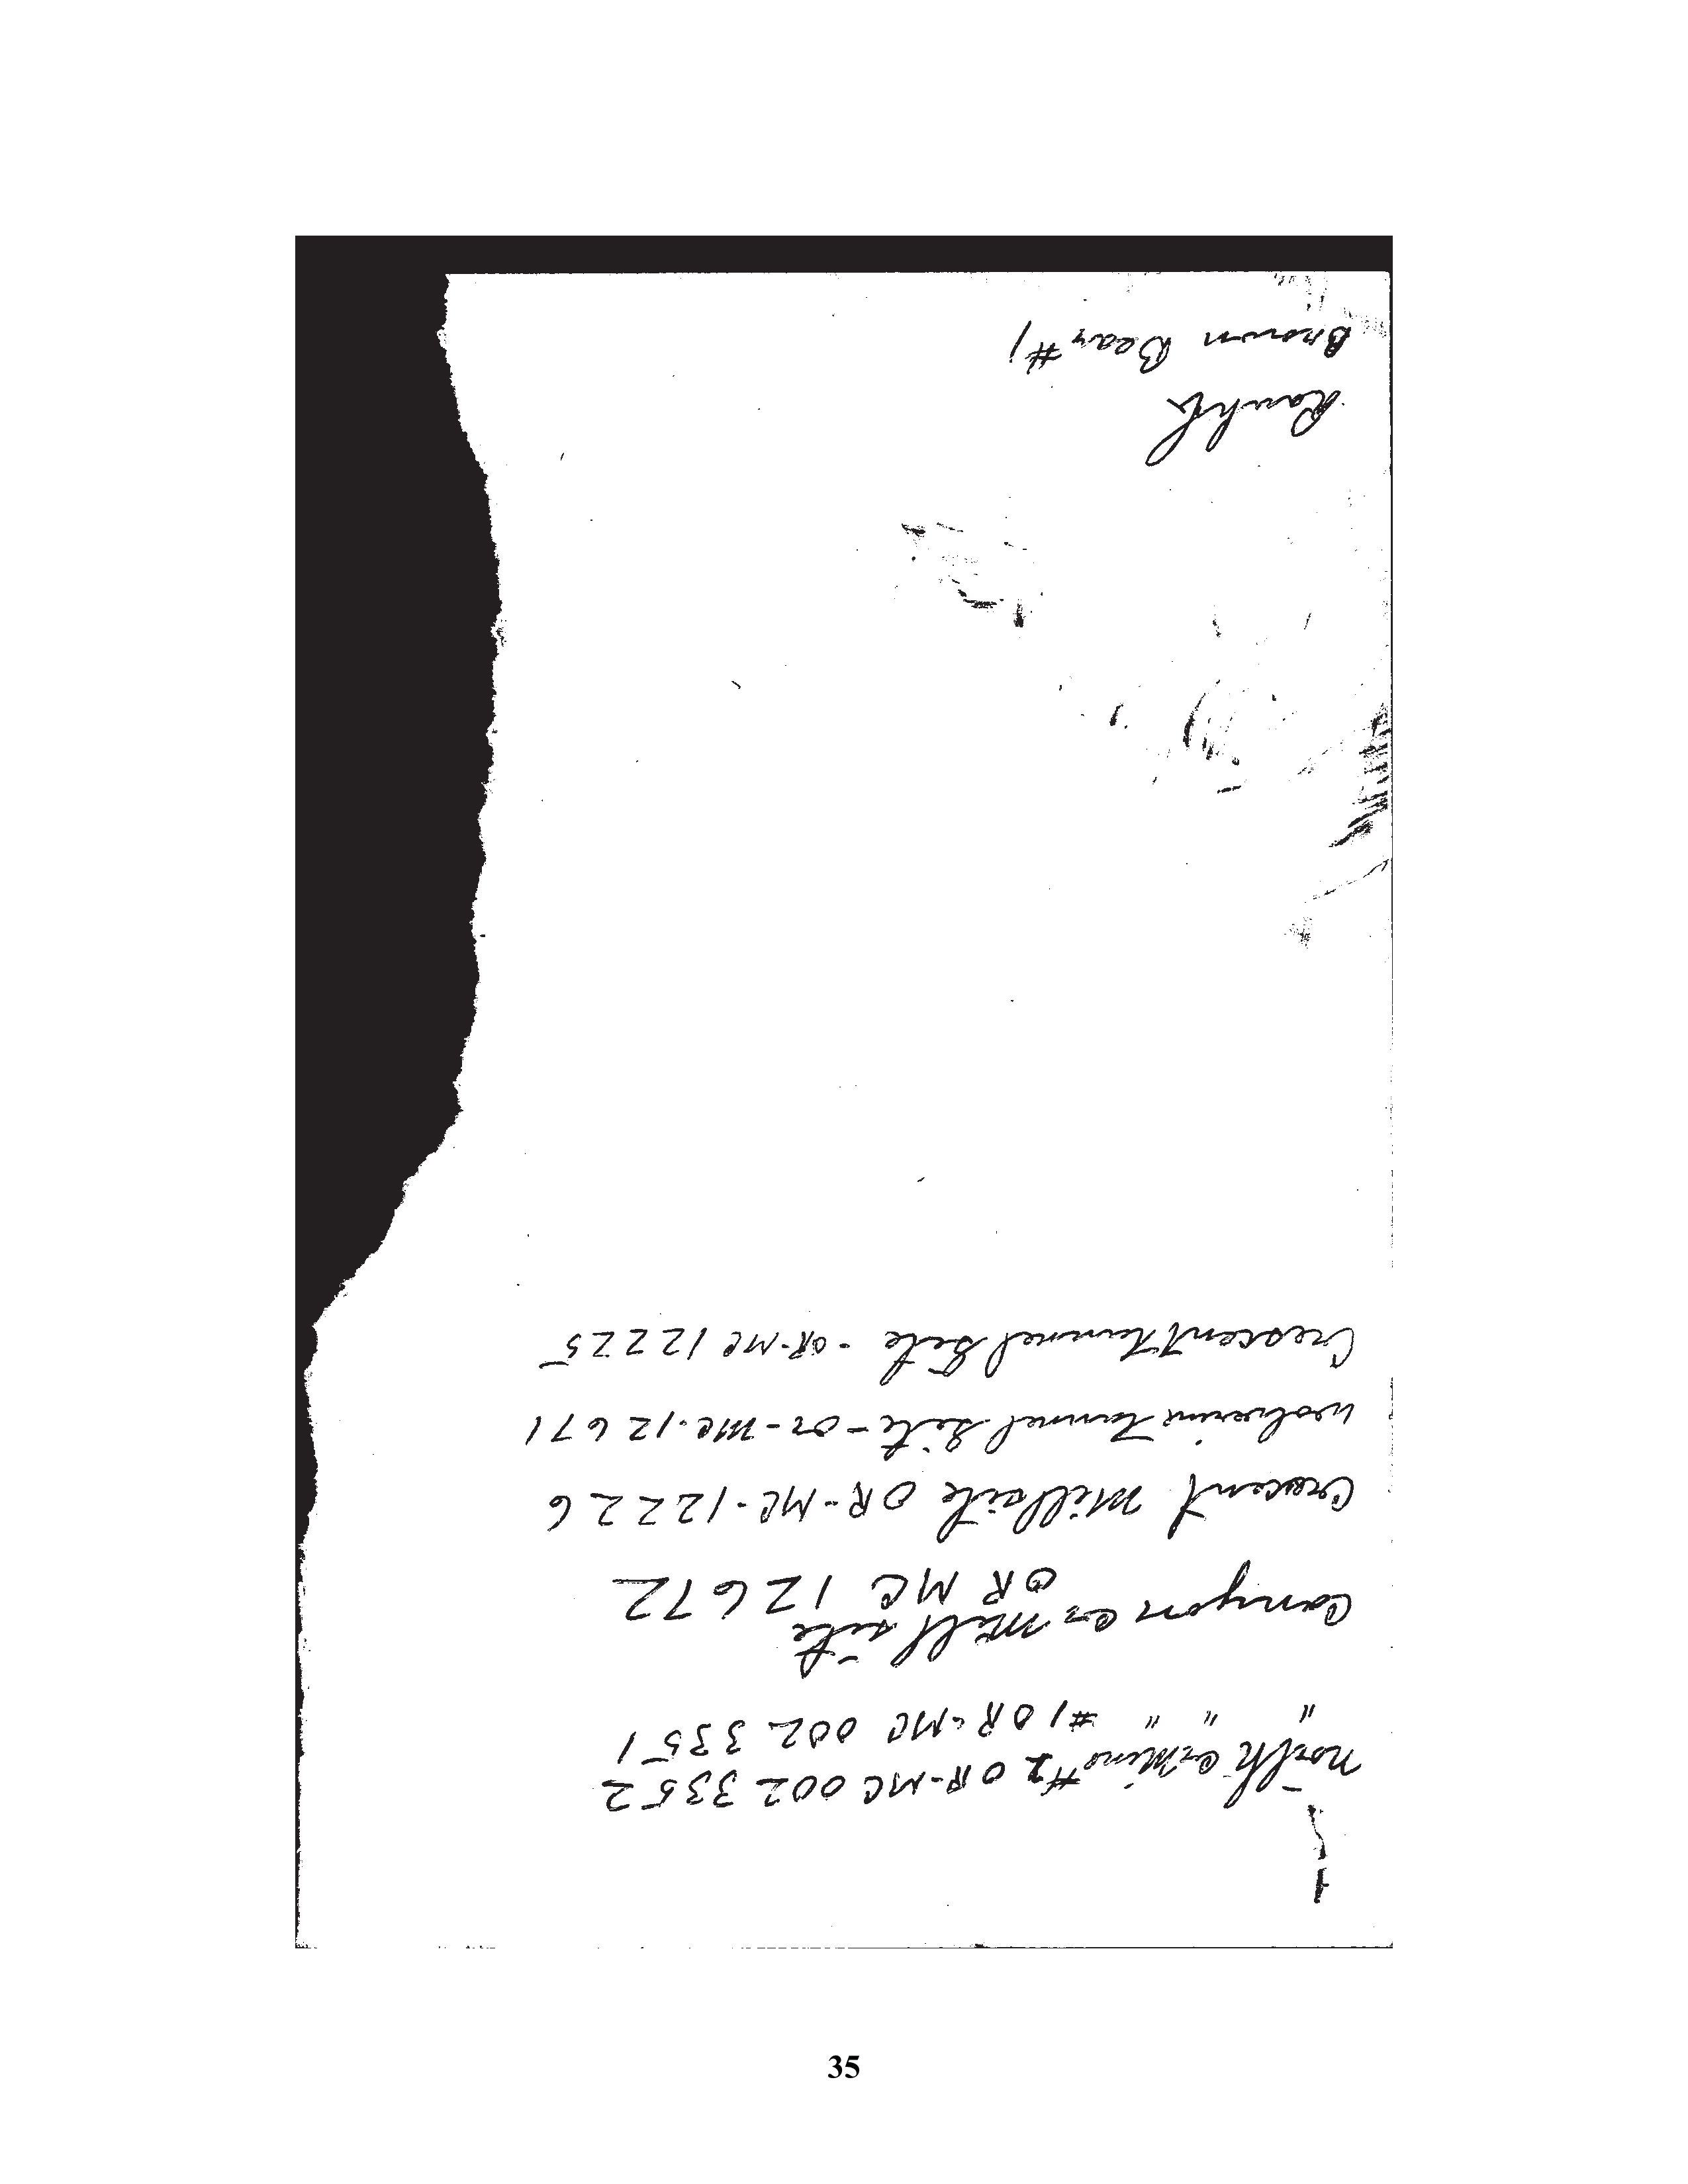 North Cr Mine #2 OR-MC 002 3352
" " " #1 OR-MC 002 3351
Canyon Cr Mill site
OR MC 12672
Crescent Millsite OR-MC-12226
Wolverine Tunnel Site - OR-MC-12671
Crescent Tunnel Site - OR-MC 12225
Brown Bear #1
35